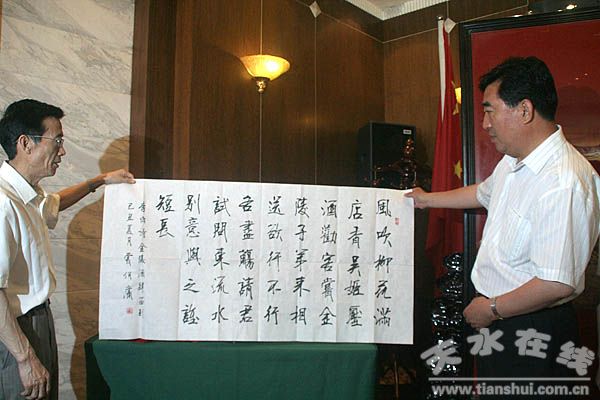 風吹柳花滿
店香吴姬壓
酒勸客嘗金
陵子弟來相
送欲行不行
各盡觴請君
試問東流水
別意與之誰
短長
李白詩金陵酒肆留别
己丑夏月
天水在线
www.tianshui.com.cn